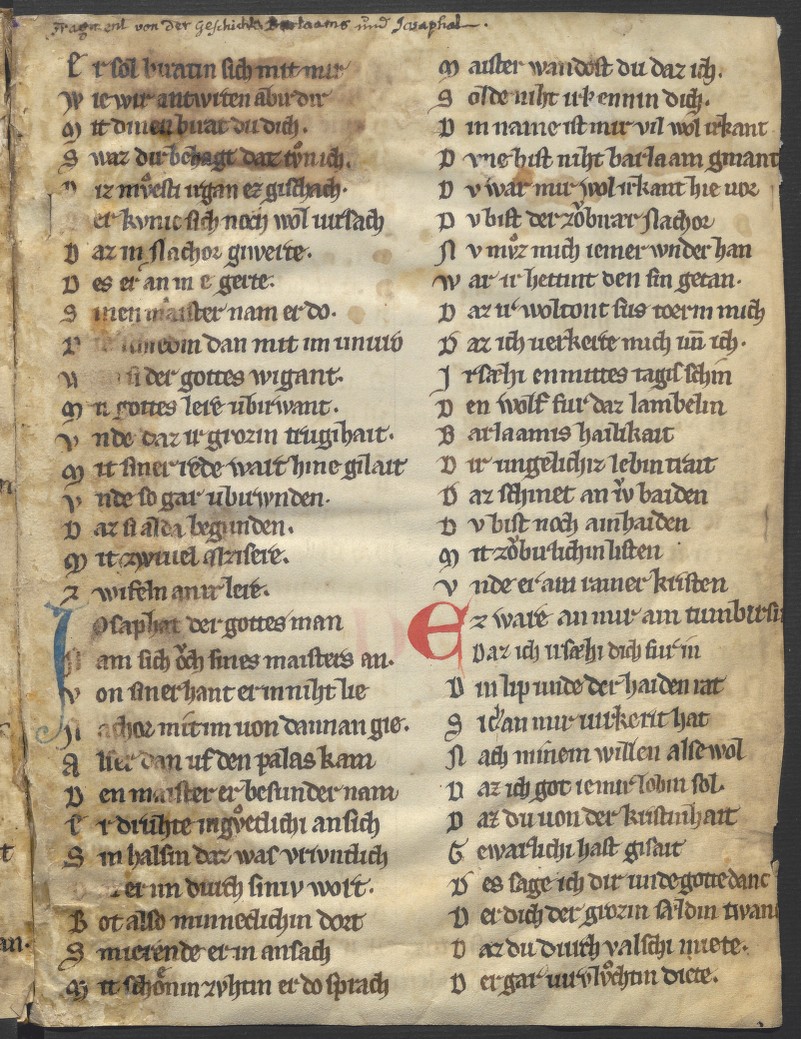 Fragment von der Geschichte Barlaams und Josaphat.
E r sol buratin sich mit mir
W ie wir antwrten abir dir
M it dinen burat du dich.
S waz dir behagt daz tvͦn ich.
D iz mvͦsti irgan ez gischach.
er kvnic sich noch wol uirsach
D az in Nachor giwerte.
D es er an in e gerte.
S inen maister nam er do.
dan mit im
der gottes wigant.
M it gottes lere ubirwant.
V nde daz ir grozin trugihait.
M it siner rede wart hine gilait
V nde so gar ubirwnden.
D az si alda begunden.
M it zwiuel
Z wifeln an ir lere.
Iosaphat der gottes man
N am sich oͮch sines maisters an.
V on siner hant er in niht lie
N achor mit im uon dannan gie.
A lser dan uf den palas kam
D en maister er besunder nam
E r druhte in gvͦtlichi an sich
S in halsin daz was vrivntlich
er im durch siniv wort.
B ot also minneclichin dort
S mierende er in ansach
M it schoͤnin zvhtin er do sprach
M aister wandost du daz ich.
S olde niht irkennin dich.
D in name ist mir vil wol irkant
D vne bist niht barlaam ginant
D v war mir wol irkant hie uor
D v bist der zoͮbirar Nachor
N v mvͦz mich iemer wnder han
W ar ir hettint den sin getan.
D az ir woltont sus toerin mich
D az ich uerkerte mich un̄ ich.
I rsæhi en mittes tagis schin
D en wolf fur daz lambelin
B arlaamis hailikait
D ir ungelichiz lebin trait
D az schinet an iv baiden
D v bist noch ain haiden
M it zoͮbirlichin listen
V nde er ain rainer kristen
Ez ware an mir ain tumbir sin
Daz ich irsæhi dich fur in
D in lip unde der haiden rat
S ich an mir uirkerit hat
N ach minem willen alse wol
D az ich got iemir lobin sol.
D az du uon der kristinhait
G ewarlichi hast gisait
D es sage ich dir unde gotte danc
D er dich der grozin sældin twanc
D az du durch valschi miete.
D er gar uirvlvͦchtin diete.